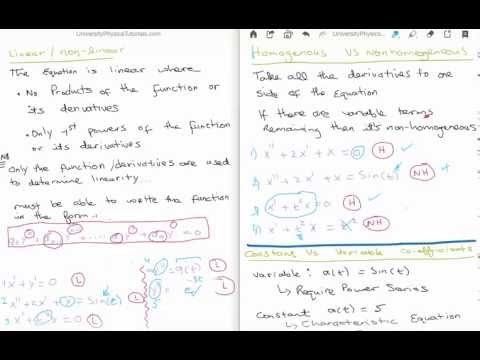 UniversityPhysicsTutorials.com
Linear / non-linear
The Equation is linear where
• No Products of the function or
its derivatives
• Only 1st powers of the function
or its derivatives
Only the function/derivatives are used
to determine linearity...
must be able to write the function
in the form...
= 0
1 x'' + x' = 0 L
2 x'' + 2x' + x = Sin(t) L
3 x' + t²x = 0 L
= g(t) L
L
UniversityPhysics...
Homogenous VS Nonhomogeneous
Take all the derivatives to one
side of the Equation
If there are variable terms
Remaining then it's non-homogeneous
1) x'' + 2x' + x = 0 H
2) x'' + 2x' + x = Sin(t) NH
3) x' + t²x = 0 H
4) x' + t²x = t² NH
Constant Vs Variable Co-efficients
variable : a(t) = Sin(t)
↳ Require Power Series
Constant a(t) = 5
↳ Characteristic Equation